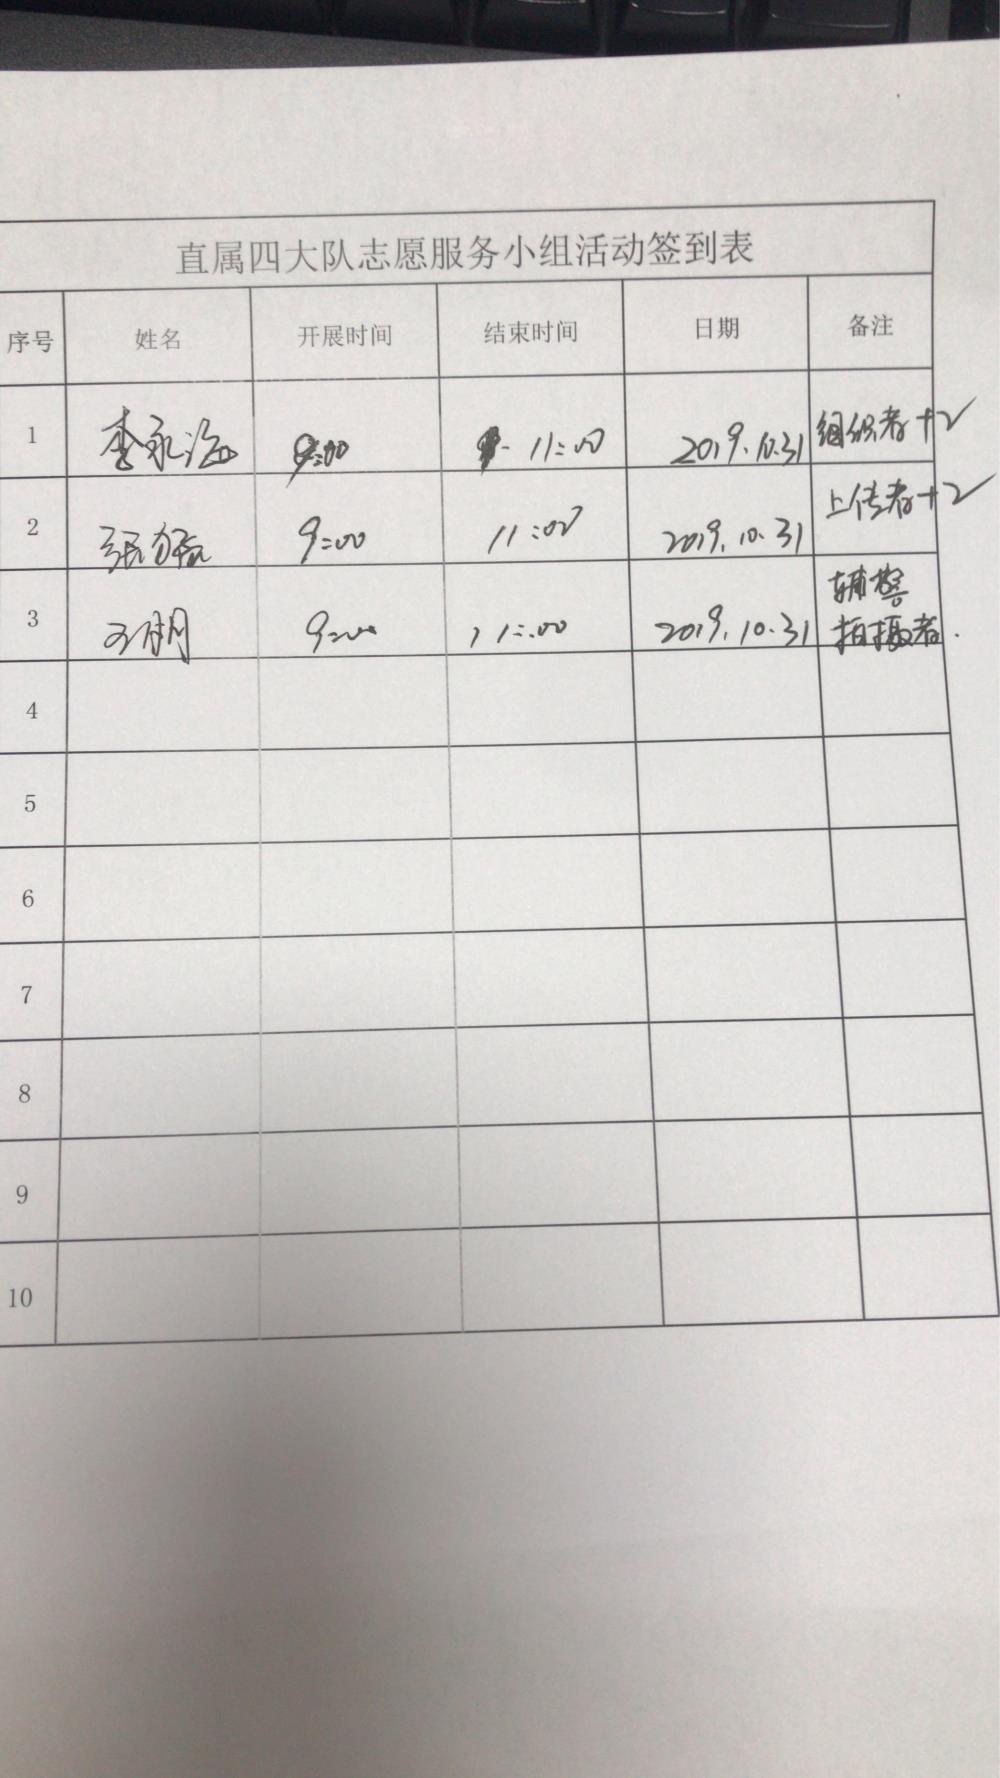 直属四大队志愿服务小组活动签到表
序号 姓名 开展时间 结束时间 日期 备注
1 李永海 9:00 11:00 2019.10.31 组织者+2
2 张 9:00 11:00 2019.10.31 上传者+2
3 9:00 11:00 2019.10.31 辅警
拍摄者.
4
5
6
7
8
9
10